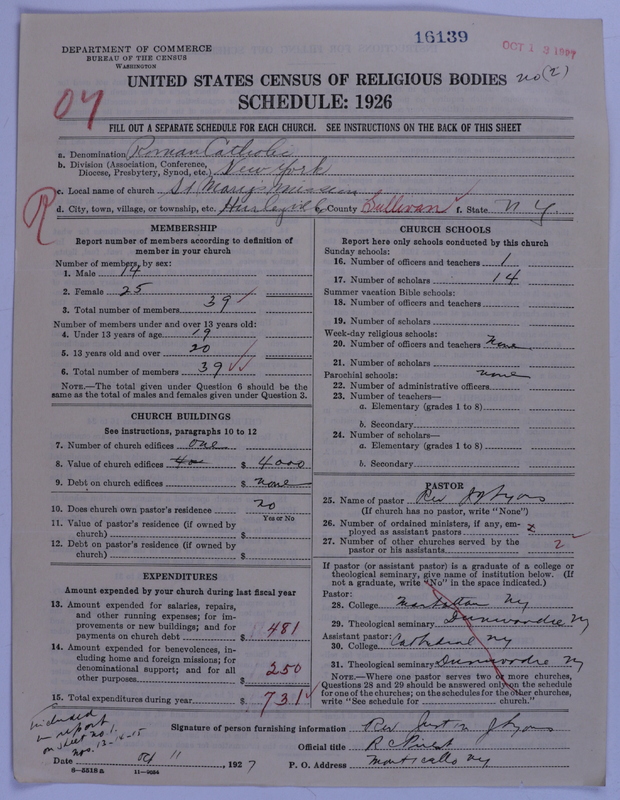 16139
OCT 13 1927
DEPARTMENT OF COMMERCE
BUREAU OF THE CENSUS
WASHINGTON
UNITED STATES CENSUS OF RELIGIOUS BODIES no (2)
SCHEDULE: 1926
04
FILL OUT A SEPARATE SCHEDULE FOR EACH CHURCH. SEE INSTRUCTIONS ON THE BACK OF THIS SHEET
a. Denomination Roman Catholic
b. Division (Association, Conference, Diocese, Presbytery, Synod, etc.) New York
c. Local name of church St Marys Mission
R
d. City, town, village, or township, etc. Hurleyville e. County Sullivan f. State N Y.
MEMBERSHIP
Report number of members according to definition of
member in your church
Number of members, by sex:
1. Male 14
2. Female 25
3. Total number of members 39
Number of members under and over 13 years old:
4. Under 13 years of age 19
5. 13 years old and over 20
6. Total number of members 39
NOTE.—The total given under Question 6 should be the
same as the total of males and females given under Question 3.
CHURCH BUILDINGS
See instructions, paragraphs 10 to 12
7. Number of church edifices one
8. Value of church edifices $ 4000
9. Debt on church edifices $ none
10. Does church own pastor's residence no
Yes or No
11. Value of pastor's residence (if owned by
church) $
12. Debt on pastor's residence (if owned by
church) $
EXPENDITURES
Amount expended by your church during last fiscal year
13. Amount expended for salaries, repairs,
and other running expenses; for im-
provements or new buildings; and for
payments on church debt $ 481
14. Amount expended for benevolences, in-
cluding home and foreign missions; for
denominational support; and for all
other purposes $ 250
15. Total expenditures during year $ 731
CHURCH SCHOOLS
Report here only schools conducted by this church
Sunday schools:
16. Number of officers and teachers 1
17. Number of scholars 14
Summer vacation Bible schools:
18. Number of officers and teachers
19. Number of scholars
Week-day religious schools:
20. Number of officers and teachers none
21. Number of scholars
Parochial schools: none
22. Number of administrative officers
23. Number of teachers—
a. Elementary (grades 1 to 8)
b. Secondary
24. Number of scholars—
a. Elementary (grades 1 to 8)
b. Secondary
PASTOR
25. Name of pastor Rev J J Lyons
(If church has no pastor, write "None")
26. Number of ordained ministers, if any, em-
ployed as assistant pastors 2
27. Number of other churches served by the
pastor or his assistants 2
If pastor (or assistant pastor) is a graduate of a college or
theological seminary, give name of institution below. (If
not a graduate, write "No" in the space indicated.)
Pastor:
28. College Manhattan Ny
29. Theological seminary Dunwoodie Ny
Assistant pastor:
30. College Cathedral ny
31. Theological seminary Dunwoodie Ny
NOTE.—Where one pastor serves two or more churches,
Questions 28 and 29 should be answered only on the schedule
for one of the churches; on the schedules for the other churches,
write "See schedule for church."
included
in report
on sheet no. 1
nos. 13-14-15
Signature of person furnishing information Rev Justin J Lyons
Official title R C Priest
Date Oct 11, 1927 P. O. Address Monticello Ny
8—5518 a 11—9034